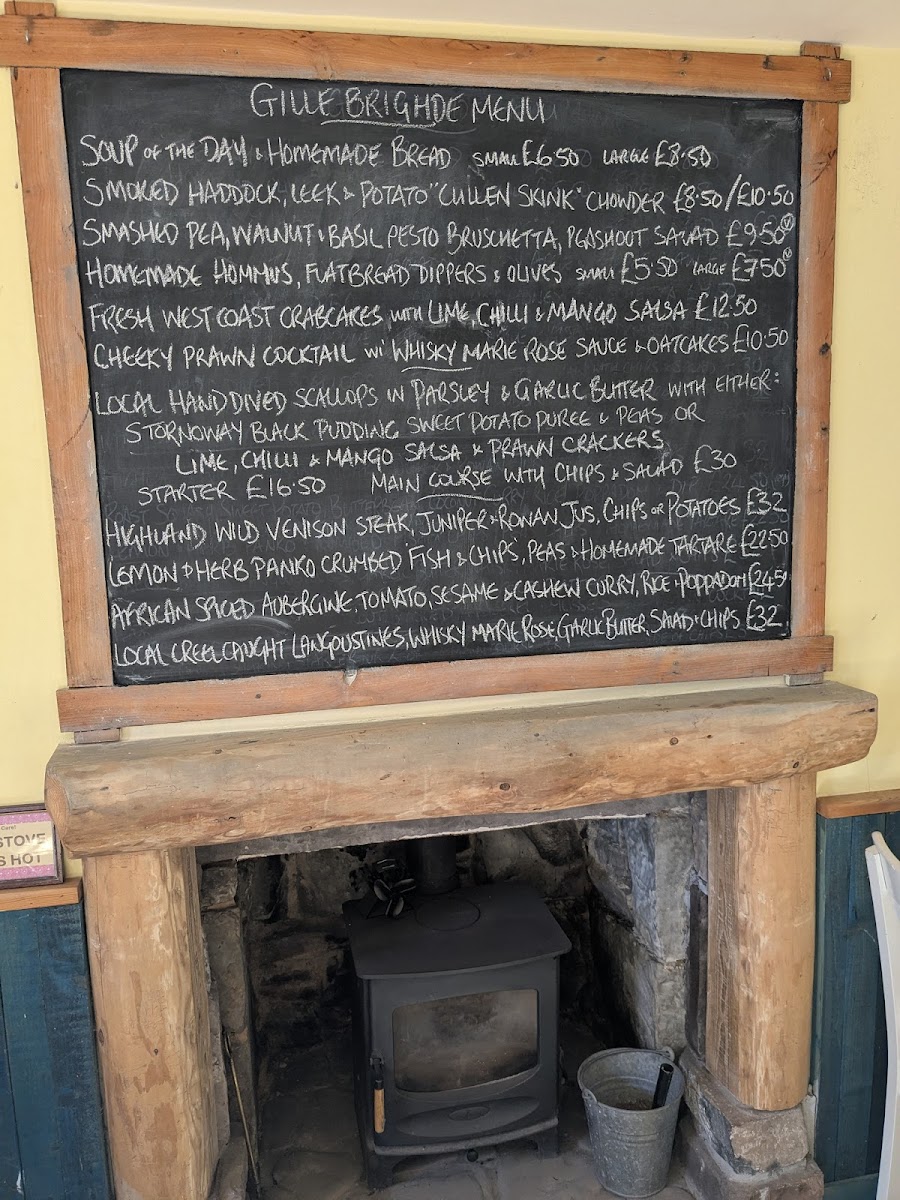 GILLE BRIGHDE MENU
SOUP OF THE DAY & HOMEMADE BREAD SMALL £6.50 LARGE £8.50
SMOKED HADDOCK, LEEK & POTATO "CULLEN SKINK" CHOWDER £8.50/£10.50
SMASHED PEA, WALNUT & BASIL PESTO BRUSCHETTA, PEASHOOT SALAD £9.50 V
HOMEMADE HOMMUS, FLATBREAD DIPPERS & OLIVES SMALL £5.50 LARGE £7.50 V
FRESH WEST COAST CRABCAKES WITH LIME, CHILLI & MANGO SALSA £12.50
CHEEKY PRAWN COCKTAIL wi' WHISKY MARIE ROSE SAUCE & OATCAKES £10.50
LOCAL HAND DIVED SCALLOPS IN PARSLEY & GARLIC BUTTER WITH EITHER:
STORNOWAY BLACK PUDDING SWEET POTATO PUREE & PEAS OR
LIME, CHILLI & MANGO SALSA & PRAWN CRACKERS
STARTER £16.50 MAIN COURSE WITH CHIPS & SALAD £30
HIGHLAND WILD VENISON STEAK, JUNIPER & RONAN JUS, CHIPS OR POTATOES £32
LEMON & HERB PANKO CRUMBED FISH & CHIPS, PEAS & HOMEMADE TARTARE £22.50
AFRICAN SPICED AUBERGINE, TOMATO, SESAME & CASHEW CURRY, RICE & POPPADOM
LOCAL CREEL CAUGHT LANGOUSTINES, WHISKY MARIE ROSE, GARLIC BUTTER, SALAD & CHIPS £32
STOVE
HOT